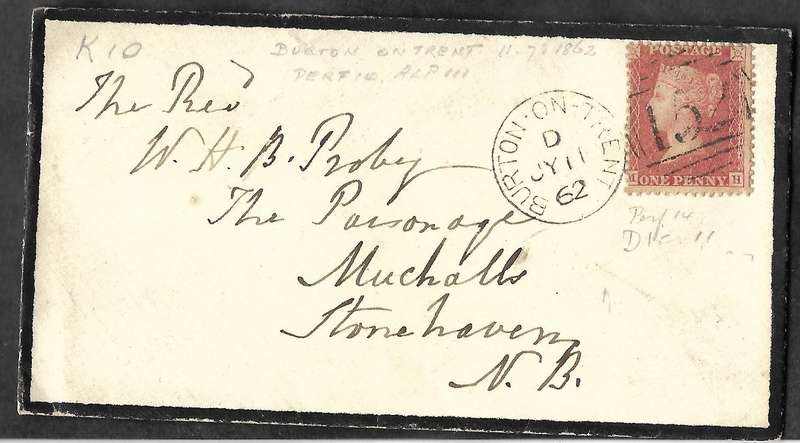 K10
BURTON ON TRENT 11-7-1862
PERF 14. ALP III
The Revd
W. H. B. Proby
The Parsonage
Muchalls
Stonehaven
N. B.
BURTON-ON-TRENT
D
JY 11
62
POSTAGE
1521
ONE PENNY
H
Perf 14